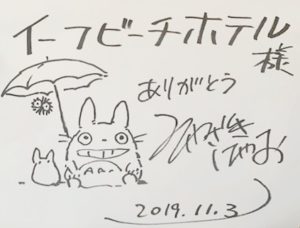 イーフビーチホテル
様
ありがとう
みやざき
はやお
2019.11.3